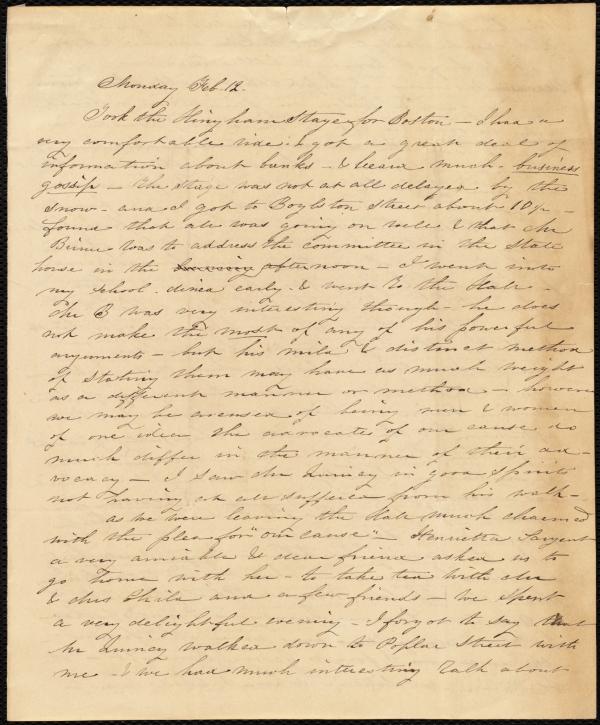 Monday Feb. 12.
Took the Hingham Stage for Boston - I had a
very comfortable ride & got a great deal of
information about banks - & heard much business
gossip - the stage was not at all delayed by the
snow - and I got to Boylston Street about 10 -
found that all was going on well & that Mr
Birney was to address the committee in the State
house in the afternoon - I went into
my school - dined early - & went to the State -
Mr B was very interesting though - he does
not make the most of any of his powerful
arguments - but his mild & distinct method
of stating them may have as much weight
as a different manner or method - however
we may be accused of being men & women
of one idea the advocates of our cause do
much differ in the manner of their ad-
vocacy - I saw Mr Quincy in good spirits
not having at all suffered from his walk -
as we were leaving the State much charmed
with the plea for "our cause" - Henrietta Sargent
a very amiable & dear friend asked us to
go home with her - to take tea with Mr
& Mrs Child and a few friends - we spent
a very delightful evening - I forgot to say that
Mr Quincy walked down to Poplar Street with
me - & we had much interesting talk about